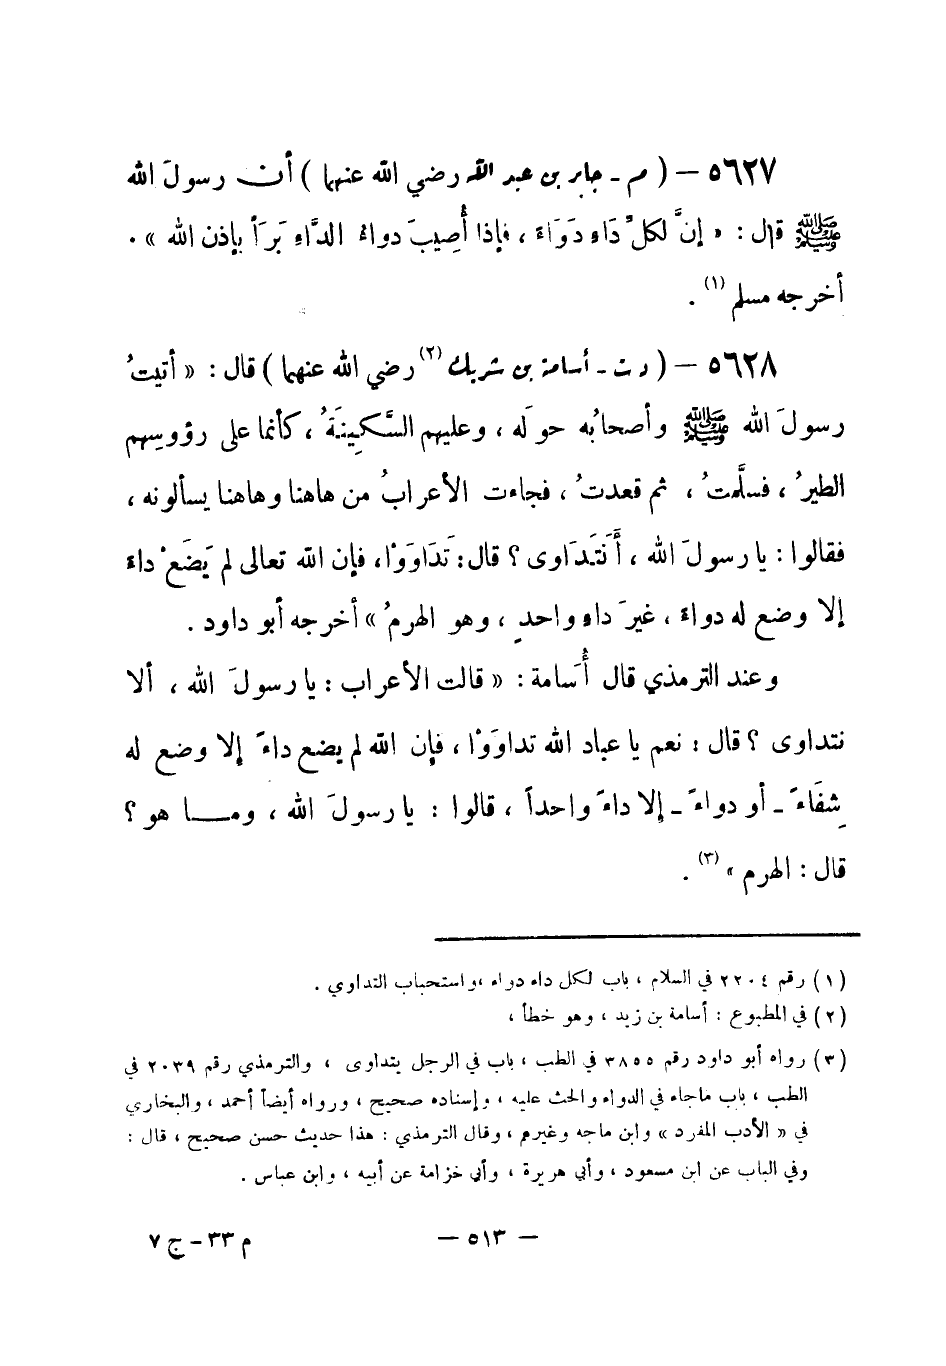 ٥٦٢٧ – ( م - جابر بن عبد الله رضي الله عنهما ) أن رسولَ الله
ﷺ قال : « إنَّ لكلِّ دَاءٍ دَوَاءَ ، فإذا أُصِيبَ دواءُ الدَّاءِ بَرَأَ بإذن الله » .
أخرجه مسلم (١) .
٥٦٢٨ – ( د ت - أسامة بن شريك (٢) رضي الله عنهما ) قال : « أتيتُ
رسولَ الله ﷺ وأصحابُه حولَه ، وعليهم السَّكِينَةُ ، كأنما على رؤوسِهم
الطيرُ ، فسلَّمتُ ، ثم قعدتُ ، فجاءت الأعرابُ من هاهنا وهاهنا يسألونه ،
فقالوا : يا رسولَ الله ، أَنَتَدَاوى ؟ قال : تَدَاوَوْا ، فإن الله تعالى لم يَضَعْ داءً
إلا وضع له دواءً ، غيرَ داءٍ واحدٍ ، وهو الهرمُ » أخرجه أبو داود .
وعند الترمذي قال أُسَامة : « قالت الأعراب : يا رسولَ الله ، ألا
نتداوى ؟ قال : نعم يا عباد الله تداوَوْا ، فإن الله لم يضع داءً إلا وضع له
شِفَاءً - أو دواءً - إلا داءً واحداً ، قالوا : يا رسولَ الله ، ومـــا هو ؟
قال : الهرم » (٣) .
(١) رقم ٢٢٠٤ في السلام ، باب لكل داء دواء ،واستحباب التداوي .
(٢) في المطبوع : أسامة بن زيد ، وهو خطأ ،
(٣) رواه أبو داود رقم ٣٨٥٥ في الطب ، باب في الرجل يتداوى ، والترمذي رقم ٢٠٣٩ في
الطب ، باب ماجاء في الدواء والحث عليه ، وإسناده صحيح ، ورواه أيضاً أحمد ، والبخاري
في « الأدب المفرد » وابن ماجه وغيرم ، وقال الترمذي : هذا حديث حسن صحيح ، قال :
وفي الباب عن ابن مسعود ، وأبي هريرة ، وأبي خزامة عن أبيه ، وابن عباس .
– ٥١٣ –
م ٣٣ - ج ٧